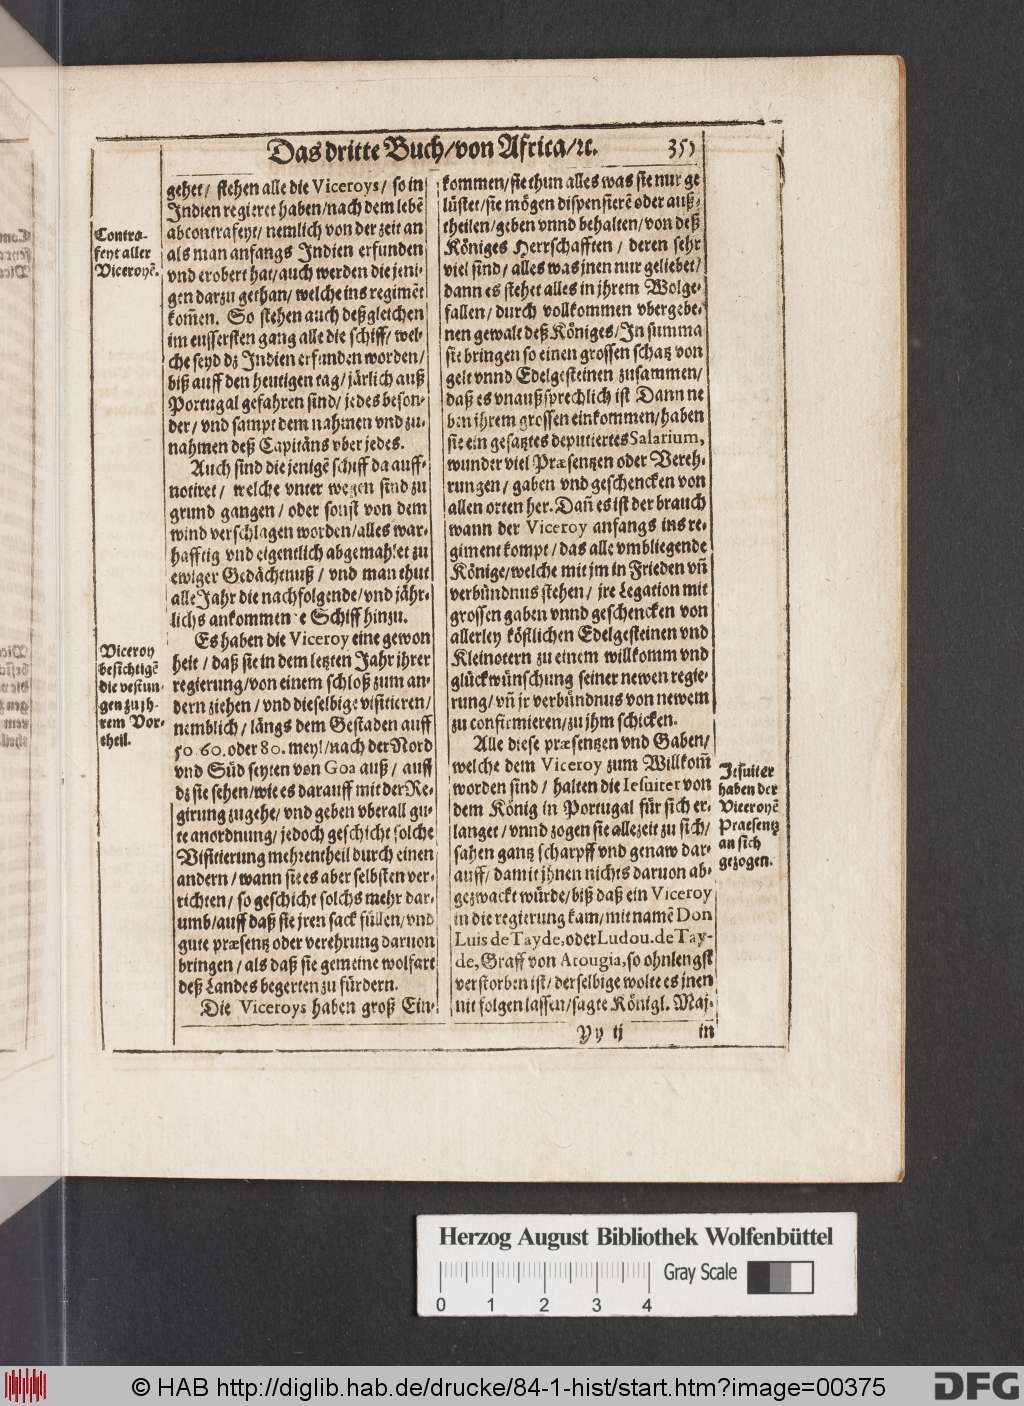 Das dritte Buch/von Africa/ꝛc. 355
gehet/ stehen alle die Viceroys/ so in
Indien regieret haben/nach dem lebẽ
abcontrafeyt/ nemlich von der zeit an
als man anfangs Indien erfunden
vnd erobert hat/auch werden die jeni-
gen darzu gethan/ welche ins regimẽt
kom̃en. So stehen auch deßgleichen
im eussersten gang alle die schiff/ wel-
che seyd dz Indien erfunden worden/
biß auff den heutigen tag/ järlich auß
Portugal gefahren sind/ jedes beson-
der/ vnd sampt dem nahmen vnd zu-
nahmen deß Capitäns vber jedes.
Auch sind die jenigẽ schiff da auff-
notiret/ welche vnter wegen sind zu
grund gangen/ oder sonst von dem
wind verschlagen worden/alles war-
hafftig vnd eigentlich abgemahlet zu
ewiger Gedächtnuß/ vnd man thut
alle Jahr die nachfolgende/vnd jähr-
lichs ankommende Schiff hinzu.
Es haben die Viceroy eine gewon
heit/ daß sie in dem letzten Jahr jhrer
regierung/von einem schloß zum an-
dern ziehen/ vnd dieselbige visitieren/
nemblich/ längs dem Gestaden auff
50 60. oder 80. meyl/nach der Nord
vnd Süd seyten von Goa auß/ auff
dz sie sehen/wie es darauff mit der Re-
girung zugehe/ vnd geben vberall gu-
te anordnung/ jedoch geschicht solche
Visitierung mehrentheil durch einen
andern/ wann sie es aber selbsten ver-
richten/ so geschicht solchs mehr dar-
umb/auff daß sie jren sack füllen/vnd
gute præsentz oder verehrung daruon
bringen/ als daß sie gemeine wolfart
deß Landes begerten zu fürdern.
Die Viceroys haben groß Ein-
Contra-
feyt aller
Viceroyẽ.
Viceroy
besichtigẽ
die vestun-
gen zu jh-
rem Vor-
theil.
kommen/sie thun alles was sie nur ge
lüstet/sie mögen dispensierẽ oder auß-
theilen/geben vnnd behalten/von deß
Königes Herrschafften/ deren sehr
viel sind/ alles was jnen nur geliebet/
dann es stehet alles in jhrem Wolge-
fallen/ durch vollkommen vbergebe-
nen gewalt deß Königes/In summa
sie bringen so einen grossen schatz von
gelt vnnd Edelgesteinen zusammen/
daß es vnaußsprechlich ist Dann ne
ben jhrem grossen einkommen/haben
sie ein gesatztes deputiertes Salarium,
wunder viel Præsentzen oder Vereh-
rungen/ gaben vnd geschencken von
allen orten her. Dañ es ist der brauch
wann der Viceroy anfangs ins re-
giment kompt/das alle vmbliegende
Könige/welche mit jm in Frieden vñ
verbündnus stehen/ jre Legation mit
grossen gaben vnnd geschencken von
allerley köstlichen Edelgesteinen vnd
Kleinotern zu einem willkomm vnd
glückwünschung seiner newen regie-
rung/ vñ jr verbündnus von newem
zu confirmieren/zu jhm schicken.
Alle diese præsentzen vnd Gaben/
welche dem Viceroy zum Willkom̃
worden sind/ halten die Iesuiter von
dem König in Portugal für sich er-
langet/ vnnd zogen sie allezeit zu sich/
sahen gantz scharpff vnd genaw dar-
auff/ damit jhnen nichts daruon ab-
gezwackt würde/biß daß ein Viceroy
in die regierung kam/mit namẽ Don
Luis de Tayde, oder Ludou. de Tay-
de, Graff von Atougia, so ohnlengst
verstorben ist/ derselbige wolte es jnen
nit folgen lassen/sagte Königl. Maj-
Jesuiter
haben der
Viceroyẽ
Praesentz
an sich
gezogen.
Yy ij in
Herzog August Bibliothek Wolfenbüttel
0 1 2 3 4
Gray Scale
© HAB http://diglib.hab.de/drucke/84-1-hist/start.htm?image=00375
DFG